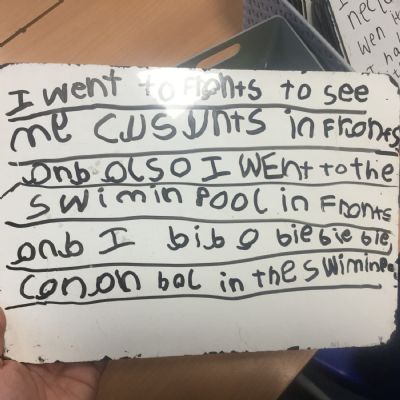 I went to Fronts to see
me CUSUNTS in Fronts
onb olso I WENt to the
swimin Pool in Fronts
onb I bib o bie bie bie
conon bol in the swimin